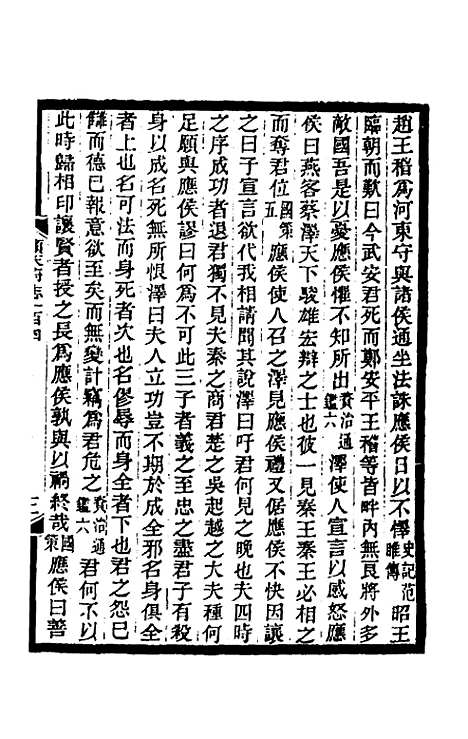 趙王稽爲河東守與諸侯通坐法誅應侯日以不懌史記范睢傳昭王
臨朝而歎曰今武安君死而鄭安平王稽等皆畔內無良將外多
敵國吾是以憂應侯懼不知所出資治通鑑六澤使人宣言以感怒應
侯曰燕客蔡澤天下駿雄宏辯之士也彼一見秦王秦王必相之
而奪君位國策五應侯使人召之澤見應侯禮又倨應侯不快因讓
之曰子宣言欲代我相請聞其說澤曰吁君何見之晚也夫四時
之序成功者退君獨不見夫秦之商君楚之吳起越之大夫種何
足願與應侯謬曰何爲不可此三子者義之至忠之盡君子有殺
身以成名死無所恨澤曰夫人立功豈不期於成全邪名身俱全
者上也名可法而身死者次也名僇辱而身全者下也君之怨已
讎而德已報意欲至矣而無變計竊爲君危之資治通鑑六君何不以
此時歸相印讓賢者授之長爲應侯孰與以禍終哉國策應侯曰善
志一百四